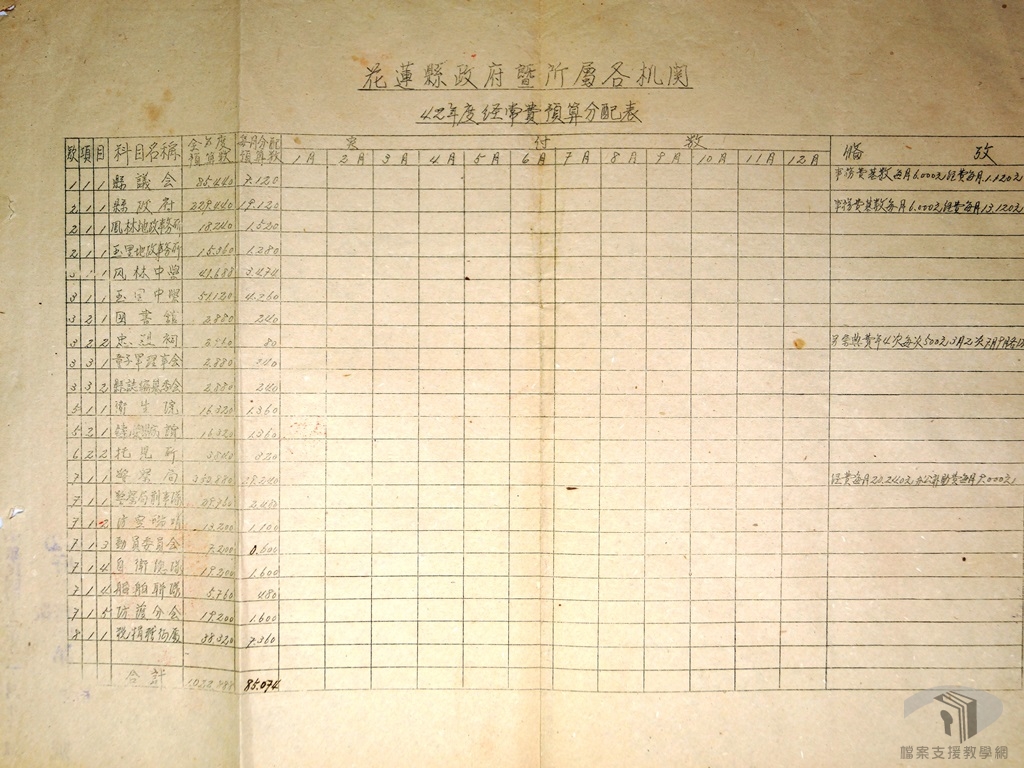 花蓮縣政府暨所屬各机関
42年度经常費預算分配表
款 項 目 科目名稱 全年度預算数 每月分配預算数 付 数 備 攷
1月 2月 3月 4月 5月 6月 7月 8月 9月 10月 11月 12月
1 1 1 縣議会 85.440 7.120 事務費基数每月6.000元经費每月1.120元
2 1 1 縣政府 229.440 19.120 事務費基数每月6.000元经費每月13.120元
2 1 1 鳳林地政事務所 18.240 1.520
2 1 1 玉里地政事務所 15.360 1.280
3 1 1 凤林中學 41.688 3.474
3 1 1 玉里中學 51.120 4.260
3 2 1 図書館 2.880 240
3 2 2 忠烈祠 80
3 3 1 童子軍理事会 2.880 240
3 3 2 縣誌編纂委会 2.880 240
5 1 1 衛生院 16.320 1.360
5 2 1 16.320 1.360
6 2 2 托児所 320
7 1 1 警察局 29.240 经費每月20.240元办公補助費每月9.000元
7 1 1 2.480
7 1 2 13.200 1.100
7 1 3 動員委員会 7.200 0.600
7 1 4 自衛総隊 19.200 1.600
7 1 4 船舶聯隊 5.760 480
7 1 5 防護分会 19.200 1.600
8 1 1 税捐稽徴處 88.320 7.360
合計 85.074
檔案支援教學網